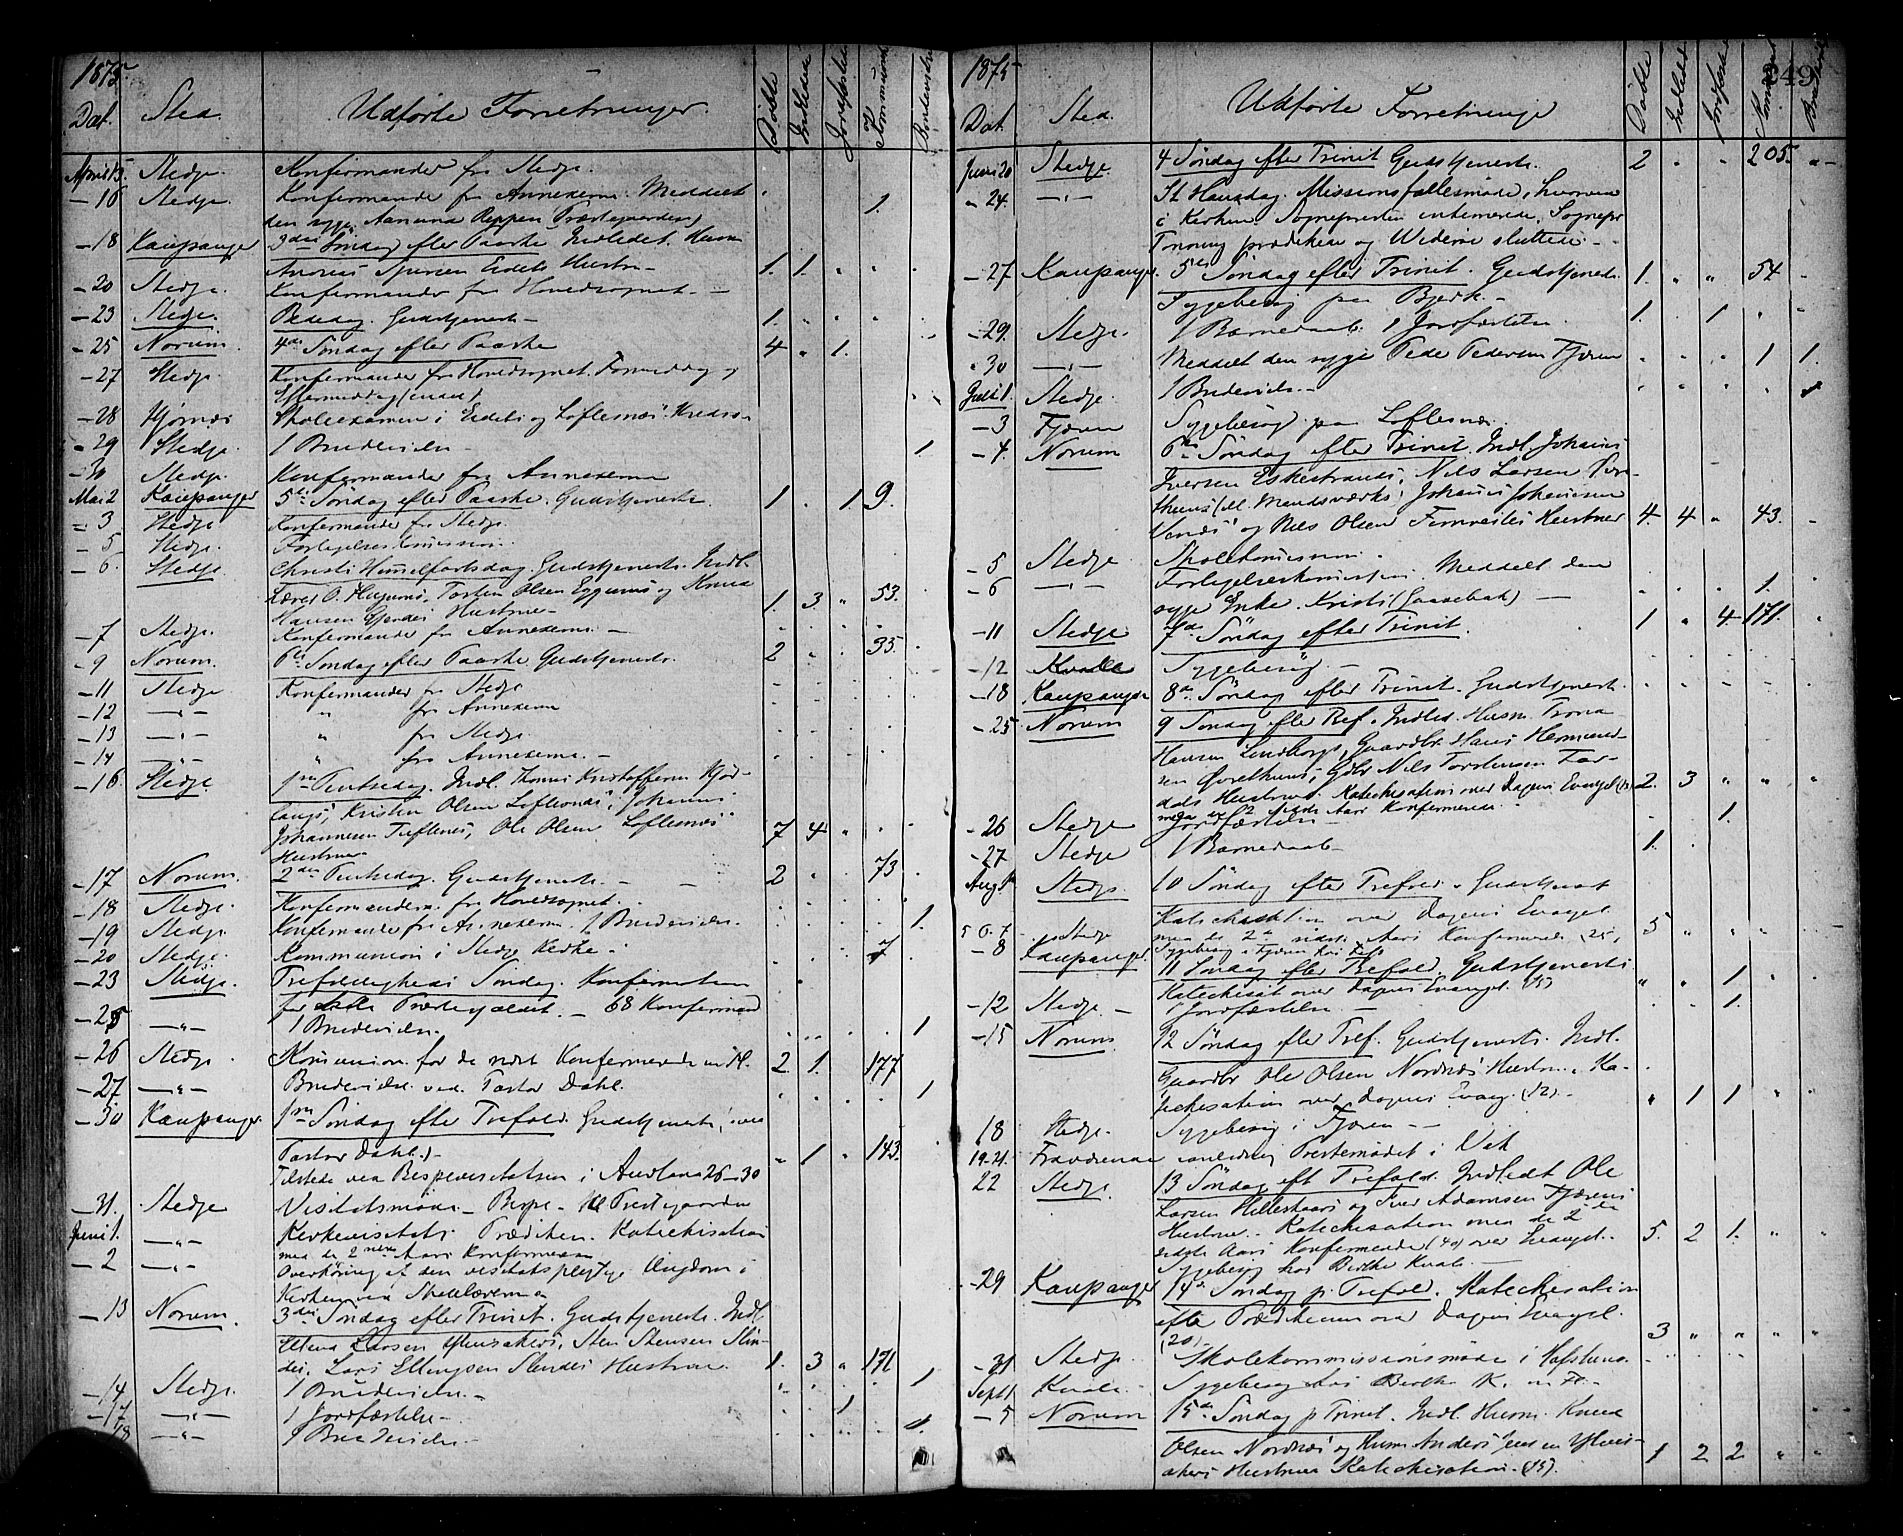 1875.
Dat. Sted. Udførte Forretninger. Døbte Indledte Jordfæstede Kommunik. Brudevielser
April 15. Stedje. Konfirmander fra Stedje.
- 16 Stedje. Konfirmander fra Annexerne. Meddelt 1.
den syge
- 18 Kaupanger 3die Søndag efter Paaske. Indledet Husm.
Hustru - 1. 1.
- 20 Stedje. Konfirmander fra Hovedsognet. -
- 23 Stedje. Bededag. Gudstjeneste - 1.
- 25 Norum. 4de Søndag efter Paaske 4 1.
- 27 Stedje. Konfirmander fra Hovedsognet. Formiddag og
Eftermiddag
- 28 Skoleexamen i Eidets og Loflesnæs Kreds
- 29 Stedje. 1 Brudevielse - 1
- 30 Stedje. Konfirmander fra Annexerne
Mai 2 Kaupanger 5te Søndag efter Paaske. Gudstjeneste. 1 1 9.
- 3 Stedje Konfirmander fra Stedje.
- 5 Stedje. Forligelseskomission.
- 6. Stedje. Christi Himmelfartsdag. Gudstjeneste. Indl.
Torsten Olsen og Knud
Hansen Hustruer - 1. 3 53.
- 7 Stedje. Konfirmander fra Annexerne. -
- 9 Norum. 6te Søndag efter Paaske. Gudstjeneste. 2 35.
- 11 Stedje Konfirmander fra Stedje
- 12 -"- " fra Annexerne
- 13 -"- " fra Stedje
- 14 -"- " fra Annexerne. -
- 16 Stedje 1ste Pintsedag. Indl.
Kristen Olsen Loflesnæs, Johannes
Johannesen Ole Olsen Loflesnæs 7 4
Hustruer
- 17 Norum. 2den Pintsedag. Gudstjeneste. - 2 73
- 18 Stedje. Konfirmanderne fra Hovedsognet.
- 19 Stedje. Konfirmander fra Annexerne. 1 Brudevielse. 1
- 20 Stedje. Kommunion i Stedje Kirke - 7
- 23 Stedje. Trefoldigheds Søndag. Konfirmation
for hele Præstegjældet. - 68 Konfirmand
- 25 -"- 1 Brudevielse. 1
- 26 Stedje Komunion for de nylig Konfirmerede Indl. 2 1. 177
- 27 -"- Brudevielse ved Pastor Dahl. 1
- 30 Kaupanger. 1ste Søndag efter Trefold. Gudstjeneste, ved
Pastor Dahl.) - 1 143.
Tilstede ved Bispevisitatsen i Aurland 26-30
- 31. Stedje Visitatsmøde - Bispe. til Præstegaarden
Juni 1. -"- Kirkevisitats. Prædiken. Katechisation
med de 2 Aars Konfirmerede
- 2 -"- Overhøring af den visitatspligtige Ungdom i
Kirken ved Skolelærerne
- 13 Norum. 3die Søndag efter Trinit. Gudstjeneste. Indl.
Larsen Sten Stensen
Lars Ellingsen Hustruer. 1. 3 171
- 14 Stedje. 1 Brudevielse. - 1
- 17 -"- 1 Jordfæstelse - 1
18 -"- 1 Brudevielse. - 1.
1875 249
Dat. Sted. Udførte Forretninger Døbte Indledte Jordfæst. Kommunik. Brudeviel.
Juni 20 Stedje. 4 Søndag efter Trinit Gudstjeneste. 2 205.
" 24. -"- St Hansdag. Missionsfællesmøde, hvorved
i Kirken Sognepresten intimerede, Sognepr
prædikede og sluttede. -
- 27 Kaupanger. 5te Søndag efter Trinit. Gudstjeneste. 1. 54
Sygebesøg paa Bjerk. -
- 29. Stedje. 1 Barnedaab. 1 Jordfæstelse 1. 1
" 30 -"- Meddelt den syge Peder Pedersen Fjæren 1 1.
Juli 1. Stedje. 1 Brudevielse. -
- 3 Fjæren Sygebesøg paa Loflesnæs.
- 4. Norum 6te Søndag efter Trinit. Indl. Johannes
Iversen Eskestrands, Nils Larsen
Johannes Johannesen
og Nils Olsen Hustruer 4. 4 43.
- 5 Stedje Skolekomission.
- 6 -"- Forligelseskomission. Meddelt den 1.
syge Enke Kristi
- 11 Stedje 7de Søndag efter Trinit. 1 4 171.
- 12 Kvale Sygebesøg. -
- 18 Kaupanger 8de Søndag efter Trinit. Gudstjeneste.
- 25 Norum 9 Søndag efter Tref. Indled. Husm. Trond
Hansen Lindborgs, Gaardbr. Hans Hermund-
sen Øvrethuns, Gdbr Nils Torstensen Far-
dals Hustruer. Katechisation over Dagens Evangel 2. 3
med de 2 sidste Aars Konfirmerede.
- 26 Stedje Jordfæstelse - 1.
- 27 Stedje 1 Barnedaab - 1.
Aug. 1. Stedje. 10 Søndag efter Trefold. Gudstjenest
Katechisation over Dagens Evangel.
med de 2de sidste Aars Konfirmerede (25) 5
5 6. 7 Stedje Sygebesøg i Fjæren
- 8 Kaupanger. 11 Søndag efter Trefold. Gudstjeneste 1
Katechisat. over Dagens Evangel. (15)
- 12 Stedje. - 1 Jordfæstelse - 1.
- 15 Norum. 12 Søndag efter Tref. Gudstjeneste. Indl.
Gaardbr Ole Olsen Nordnæs Hustru. Ka-
techisation over Dagens Evang. (12). - 1 1
18 Stedje. Sygebesøg i Fjæren - -
19-21. Fraværende Præstemødet i Vik
22 Stedje. 13 Søndag eft Trefold. Indledt Ole
Larsen Hillestads og Iver Adamsen Fjærens
Hustruer. Katechisation med de 2de
sidste Aars Konfirmerede (40) over Evangel. 5. 2 1.
Sygebesøg hos Berthe Kvale. -
- 29 Kaupanger 14de Søndag p. Trefold. Katechisation
efter Prædikenen over Dagens Evangel.
(20) 3
- 31 Stedje. Skolekommissionsmøde i Hofslund.
Sept 1 Kvale. Sygebesøg hos Berthe K.
- 5 Norum 15de Søndag p Trinit. Indl. Husm. Knud
Olsen Nordnæs og Husm Anders
Hustruer Katechisation. (15). 1 2 2